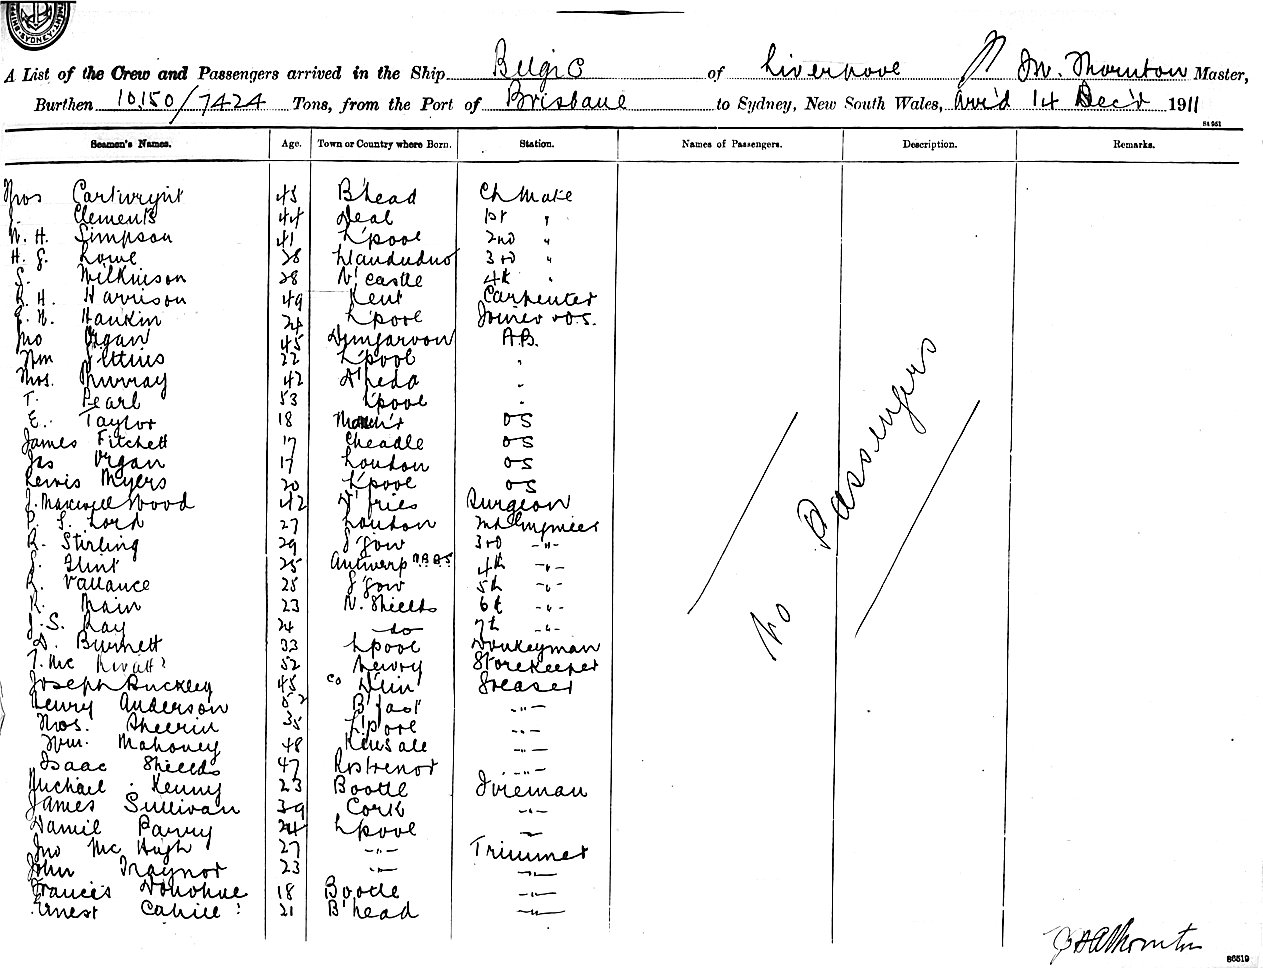 SYDNEY
A List of the Crew and Passengers arrived in the Ship Belgic of Liverpool J. H. Thornton Master,
Burthen 10150/7424 Tons, from the Port of Brisbane to Sydney, New South Wales, Arr'd 14 Dec'r 1911
Seamen's Names. Age. Town or Country where Born. Station. Names of Passengers. Description. Remarks.
Thos Cartwright 43 B'head Ch Mate
J. Clements 44 Deal 1st "
W. H. Simpson 41 L'pool 2nd "
H. G. Lowe 28 Llandudno 3rd "
S. Wilkinson 28 N'castle 4th "
R. H. Harrison 49 Kent Carpenter
J. H. Hankin 24 L'pool Joiner & O.S.
Jno Organ 45 Dungarvon A.B.
Wm 22 L'pool "
Thos. Murray 42 D'heda "
T. Pearl 53 L'pool "
E. Taylor 18 Manch'r OS
James Fitchett 17 Cheadle OS
Jas Organ 17 London OS
Lewis Myers 20 L'pool OS
J. Maxwell Wood 42 D'fries Surgeon
P. S. Lord 27 London 2nd Engineer
R. Stirling 29 G'gow 3rd -"-
J. Flint 25 Antwerp N.B.B.S 4th -"-
R. Vallance 25 G'gow 5th -"-
R. Main 23 N. Shields 6th -"-
J. S. Ray 24 -do- 7th -"-
D. Burnett 33 L'pool Donkeyman
T. Mc 52 Newry Storekeeper
Joseph Buckley 45 Co D'lin Greaser
Henry Anderson 52 B'fast -"-
Thos. Sheerin 35 L'pool -"-
Wm. Mahoney 48 Kinsale -"-
Isaac Shields 47 Rostrevor -"-
Michael Kenny 23 Bootle Fireman
James Sullivan 39 Cork -"-
Daniel Parry 24 L'pool -"-
Jno McHugh 27 -"- Trimmer
John Traynor 23 -"- -"-
Francis Donohue 18 Bootle -"-
Ernest Cahill 21 B'head -"-
No Passengers
J H Thornton